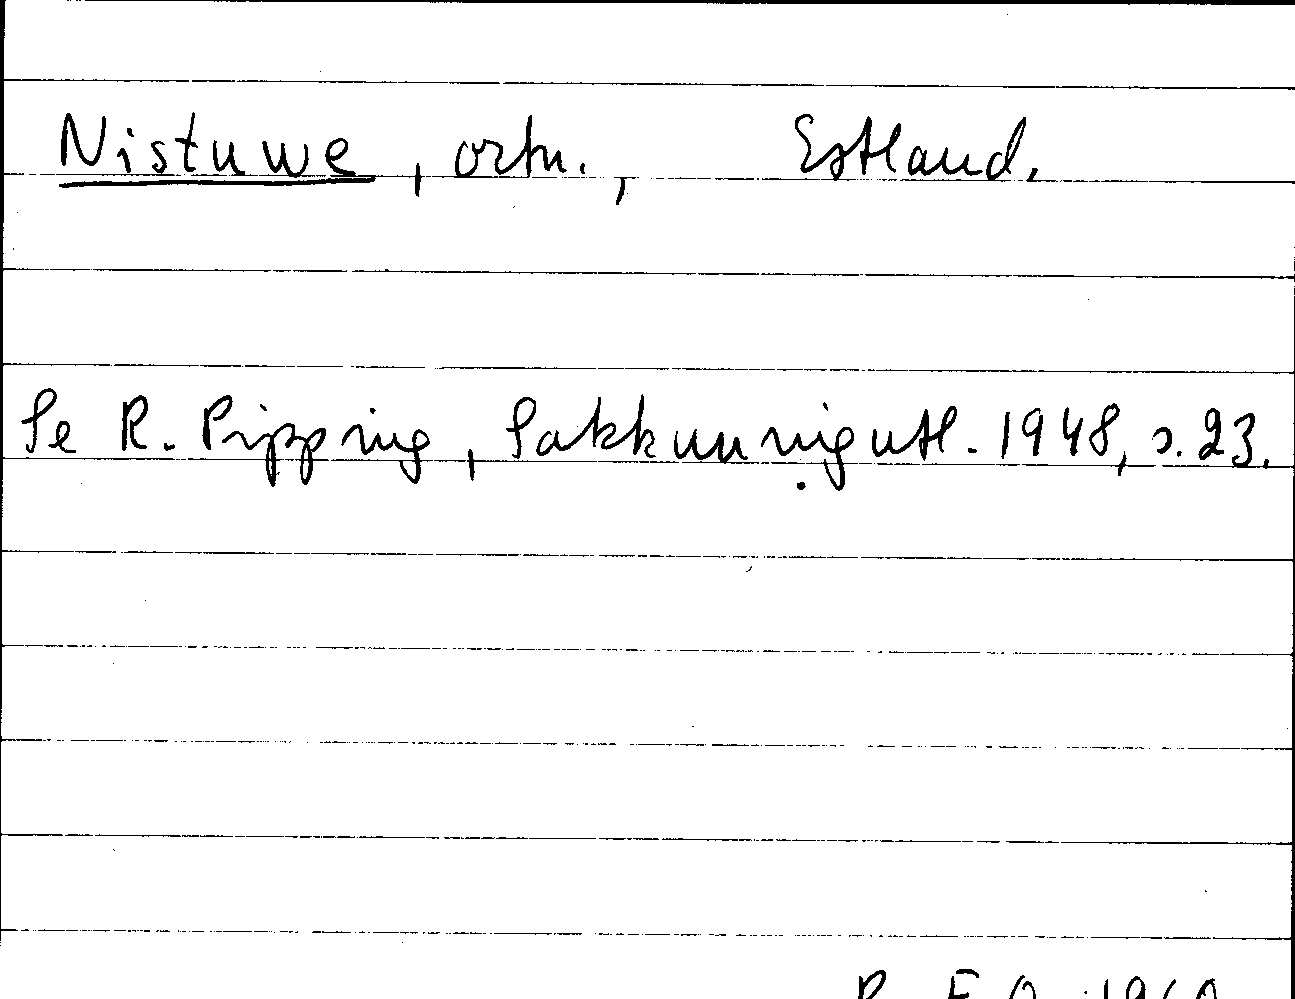 Nistuwe, ortn., Estland.
Se R. Pipping, Sakkunnigutl. 1948, s. 23.